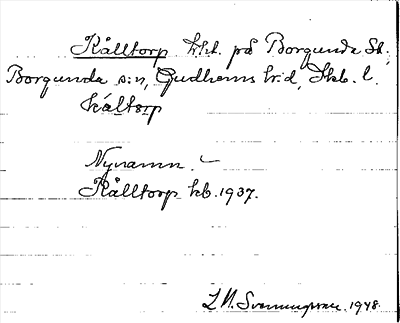 Kålltorp hht. på Borgunda St.
Borgunda s:n, Gudhems hr:d, Skb. l.
kåltorp
Nynamn.
Kålltorp kb. 1937.
Svenningsson. 1948.